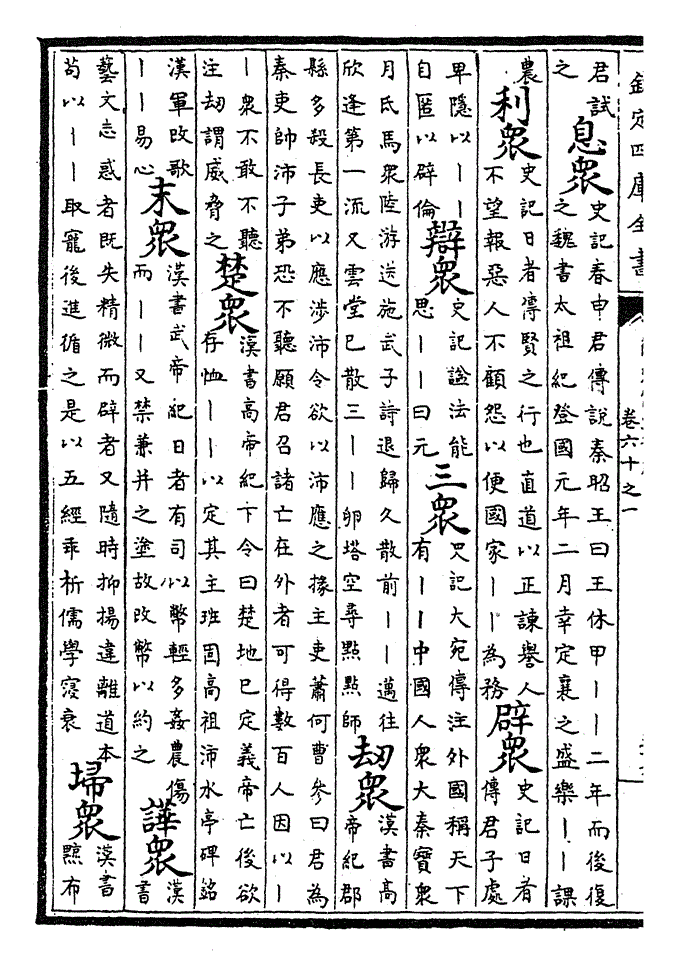 欽定四庫全書
卷六十之一
君試之息衆史記春申君傳說秦昭王曰王休甲丨丨二年而後復之魏書太祖紀登國元年二月幸定襄之盛樂丨丨課
農利衆史記日者傳賢之行也直道以正諫舉人不望報惡人不顧怨以便國家丨丨為務辟衆史記日者傳君子處
卑隱以丨丨自匿以辟倫辯衆史記諡法能思丨丨曰元三衆史記大宛傳注外國稱天下有丨丨中國人衆大秦寶衆
月氏馬衆陸游送施武子詩退歸久散前丨丨邁往欣逢第一流又雲堂已散三丨丨卵塔空尋點點師劫衆漢書高帝紀郡
縣多殺長吏以應涉沛令欲以沛應之掾主吏蕭何曹參曰君為秦吏帥沛子弟恐不聽願君召諸亡在外者可得數百人因以丨
丨衆不敢不聽注劫謂威脅之楚衆漢書高帝紀下令曰楚地已定義帝亡後欲存恤丨丨以定其主班固高祖沛水亭碑銘
漢軍改歌丨丨易心末衆漢書武帝紀日者有司以幣輕多姦農傷而丨丨又禁兼并之塗故改幣以約之譁衆漢書
藝文志惑者既失精微而辟者又隨時抑揚違離道本苟以丨丨取寵後進循之是以五經乖析儒學寖衰埽衆漢書黥布